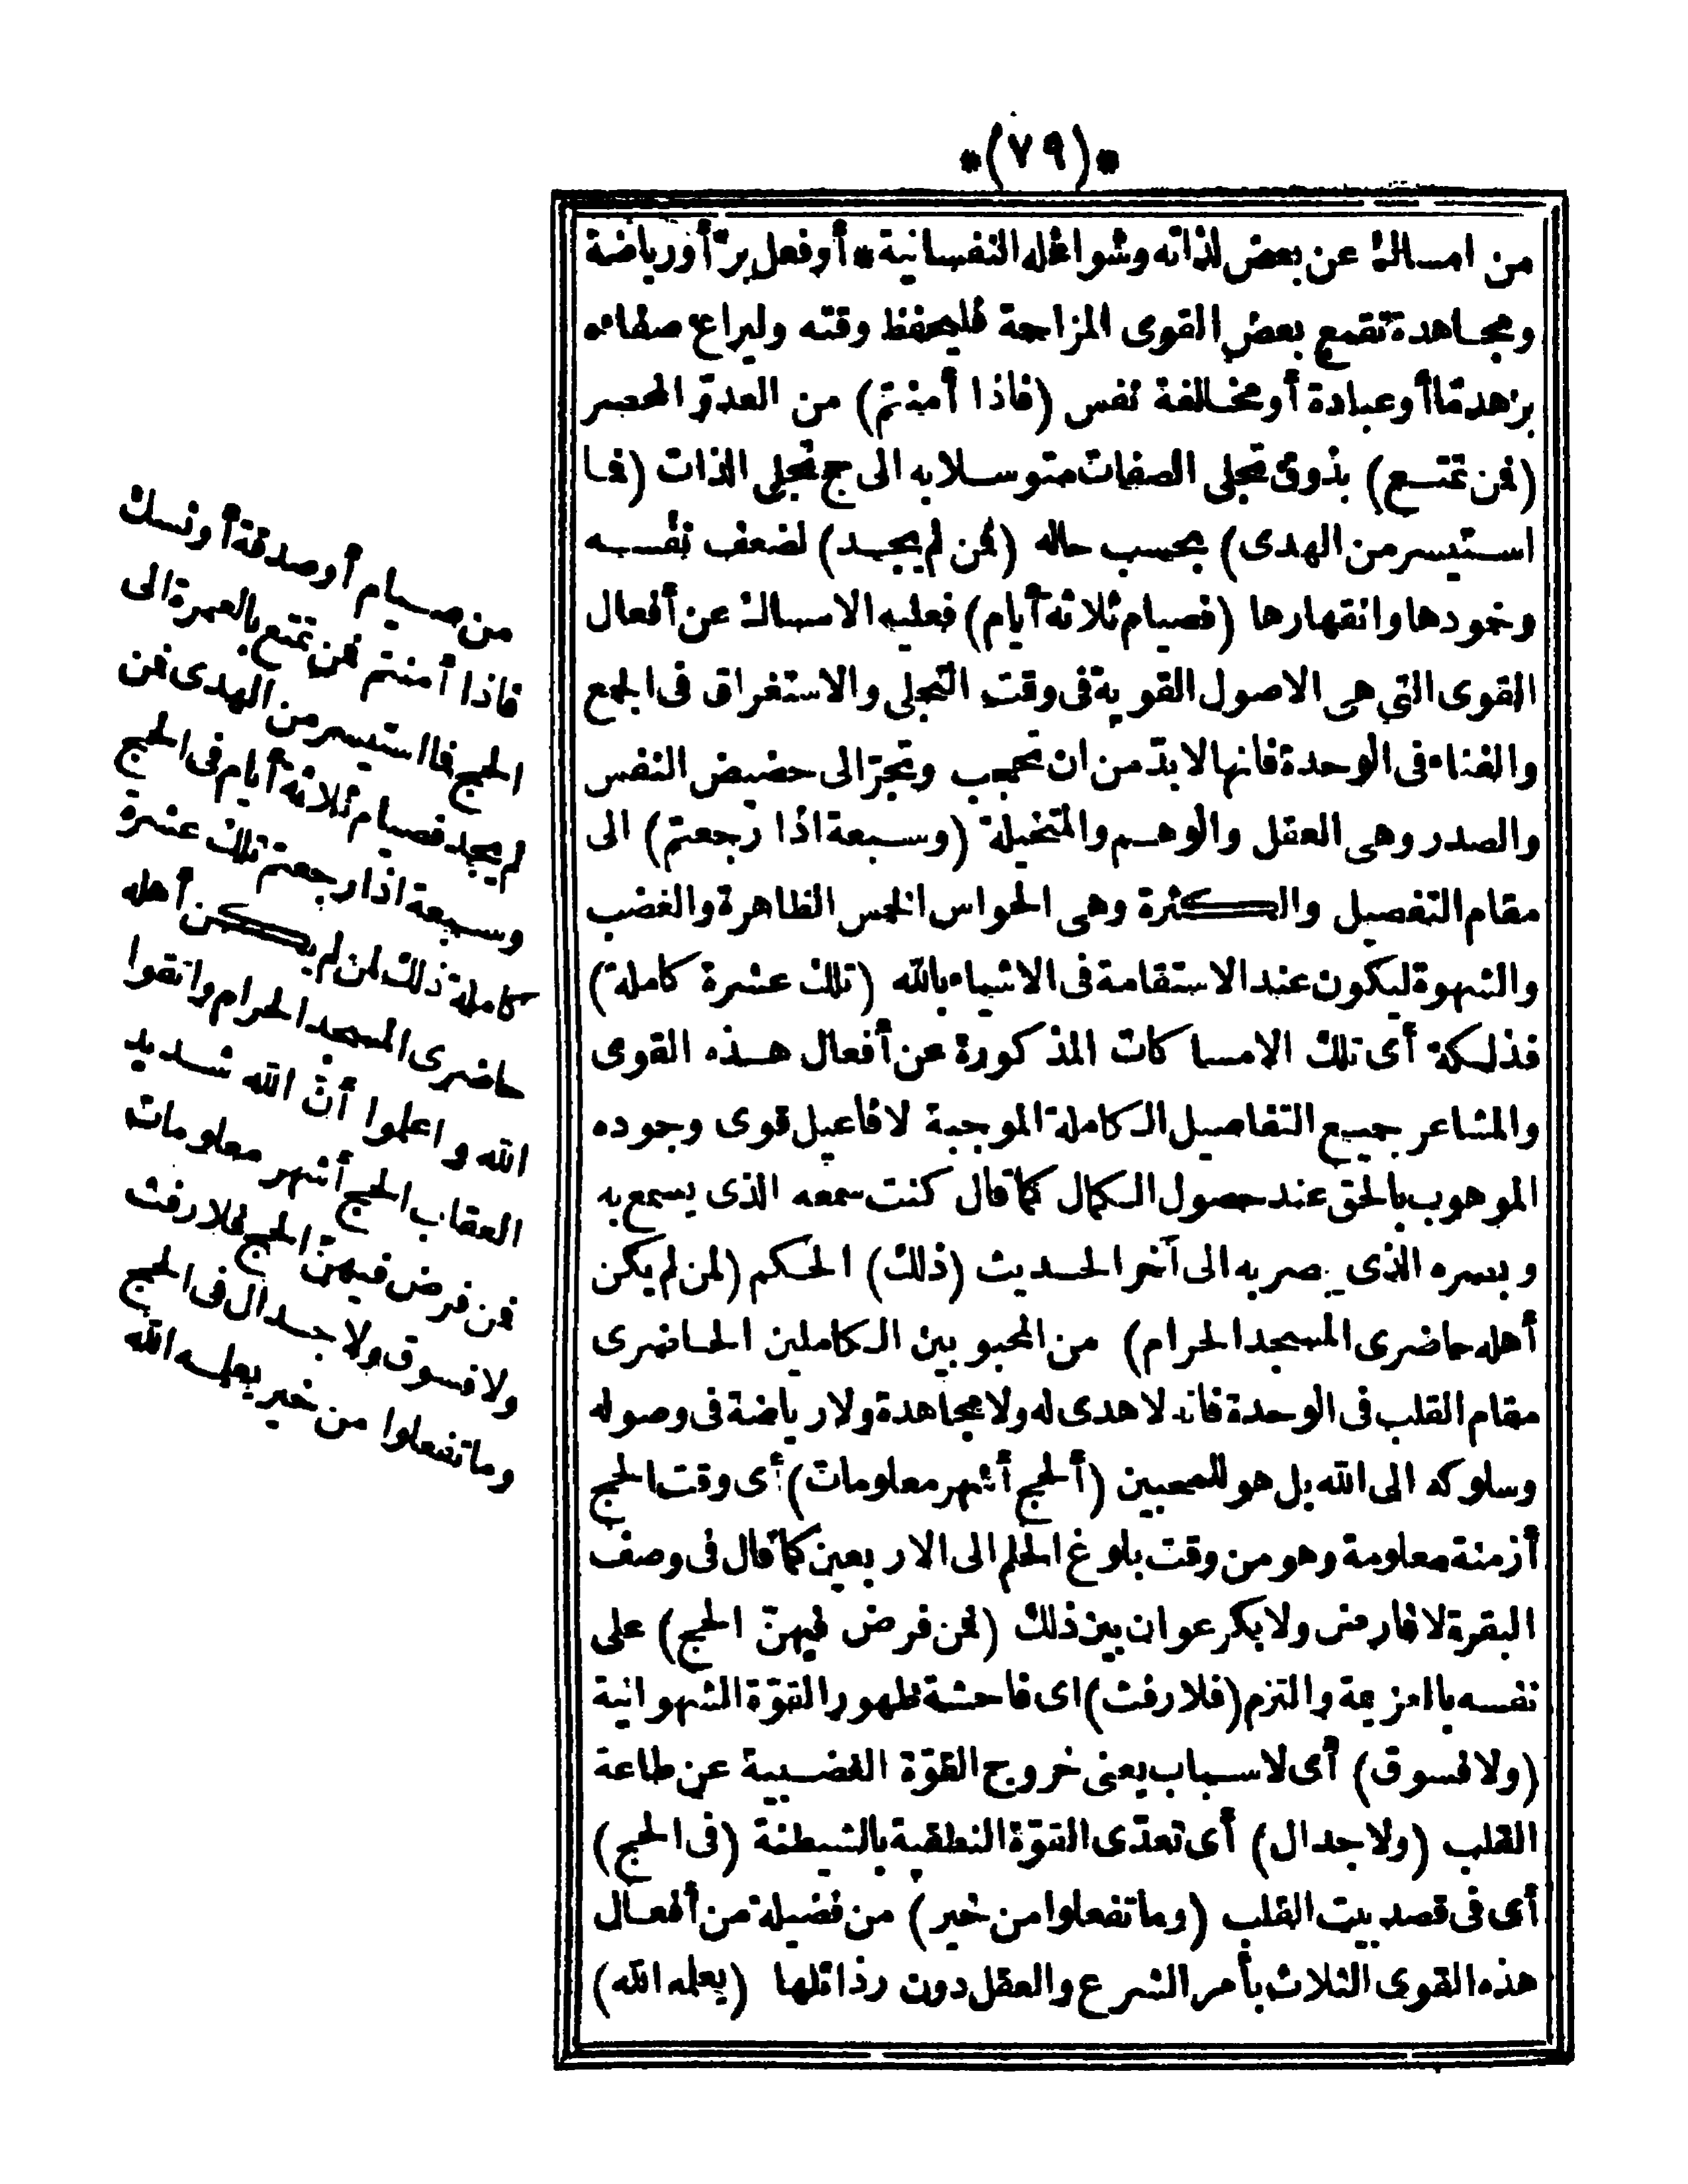 *(٧٩)*
من امساك عن بعض لذاته وشواغله النفسانية * أوفعل برّ أورياضة
ومجاهدة تقمع بعض القوى المزاحمة فليحفظ وقته وليراع صفاءه
بزهدمّا أوعبادة أومخالفة نفس (فاذا أمنتم) من العدوّ المحصر
(فمن تمتع) بذوق تجلى الصفات متوسلا به الى حج تجلى الذات (فما
استيسر من الهدى) بحسب حاله (فمن لم يجد) لضعف نفسه
وخمودها وانقهارها (فصيام ثلاثة أيام) فعليه الامساك عن أفعال
القوى التى هى الاصول القوية فى وقت التجلى والاستغراق فى الجمع
والفناء فى الوحدة فانها لابدّ من ان تحجب وتجرّ الى حضيض النفس
والصدر وهى العقل والوهم والمتخيلة (وسبعة اذا رجعتم) الى
مقام التفصيل والكثرة وهى الحواس الخمس الظاهرة والغضب
والشهوة ليكون عند الاستقامة فى الاشياء بالله (تلك عشرة كاملة)
فذلكة أى تلك الامساكات المذكورة عن أفعال هذه القوى
والمشاعر جميع التفاصيل الكاملة الموجبة لافاعيل قوى وجوده
الموهوب بالحق عند حصول الكمال كما قال كنت سمعه الذى يسمع به
وبصره الذى يبصر به الى آخر الحديث (ذلك) الحكم (لمن لم يكن
أهله حاضرى المسجد الحرام) من المحبوبين الكاملين الحاضرى
مقام القلب فى الوحدة فانه لا هدى له ولا مجاهدة ولا رياضة فى وصوله
وسلوكه الى الله بل هو للمحبين (ألحج أشهر معلومات) أى وقت الحج
أزمنة معلومة وهو من وقت بلوغ الحلم الى الاربعين كما قال فى وصف
البقرة لا فارض ولا بكر عوان بين ذلك (فمن فرض فيهنّ الحج) على
نفسه بالعزيمة والتزم (فلا رفث) اى فاحشة ظهور القوّة الشهوانية
(ولا فسوق) أى لا سباب يعنى خروج القوّة الغضبية عن طاعة
القلب (ولا جدال) أى تعدّى القوّة النطقية بالشيطنة (فى الحج)
أى فى قصد بيت القلب (وما تفعلوا من خير) من فضيلة من أفعال
هذه القوى الثلاث بأمر الشرع والعقل دون رذائلها (يعلمه الله)
من صيام أوصدقة أونسك
فاذا أمنتم فمن تمتع بالعمرة الى
الحج فما استيسر من الهدى فمن
لم يجد فصيام ثلاثة أيام فى الحج
وسبعة اذا رجعتم تلك عشرة
كاملة ذلك لمن لم يكن أهله
حاضرى المسجد الحرام واتقوا
الله واعلموا أنّ الله شديد
العقاب الحج أشهر معلومات
فمن فرض فيهنّ الحج فلا رفث
ولا فسوق ولا جدال فى الحج
وما تفعلوا من خير يعلمه الله